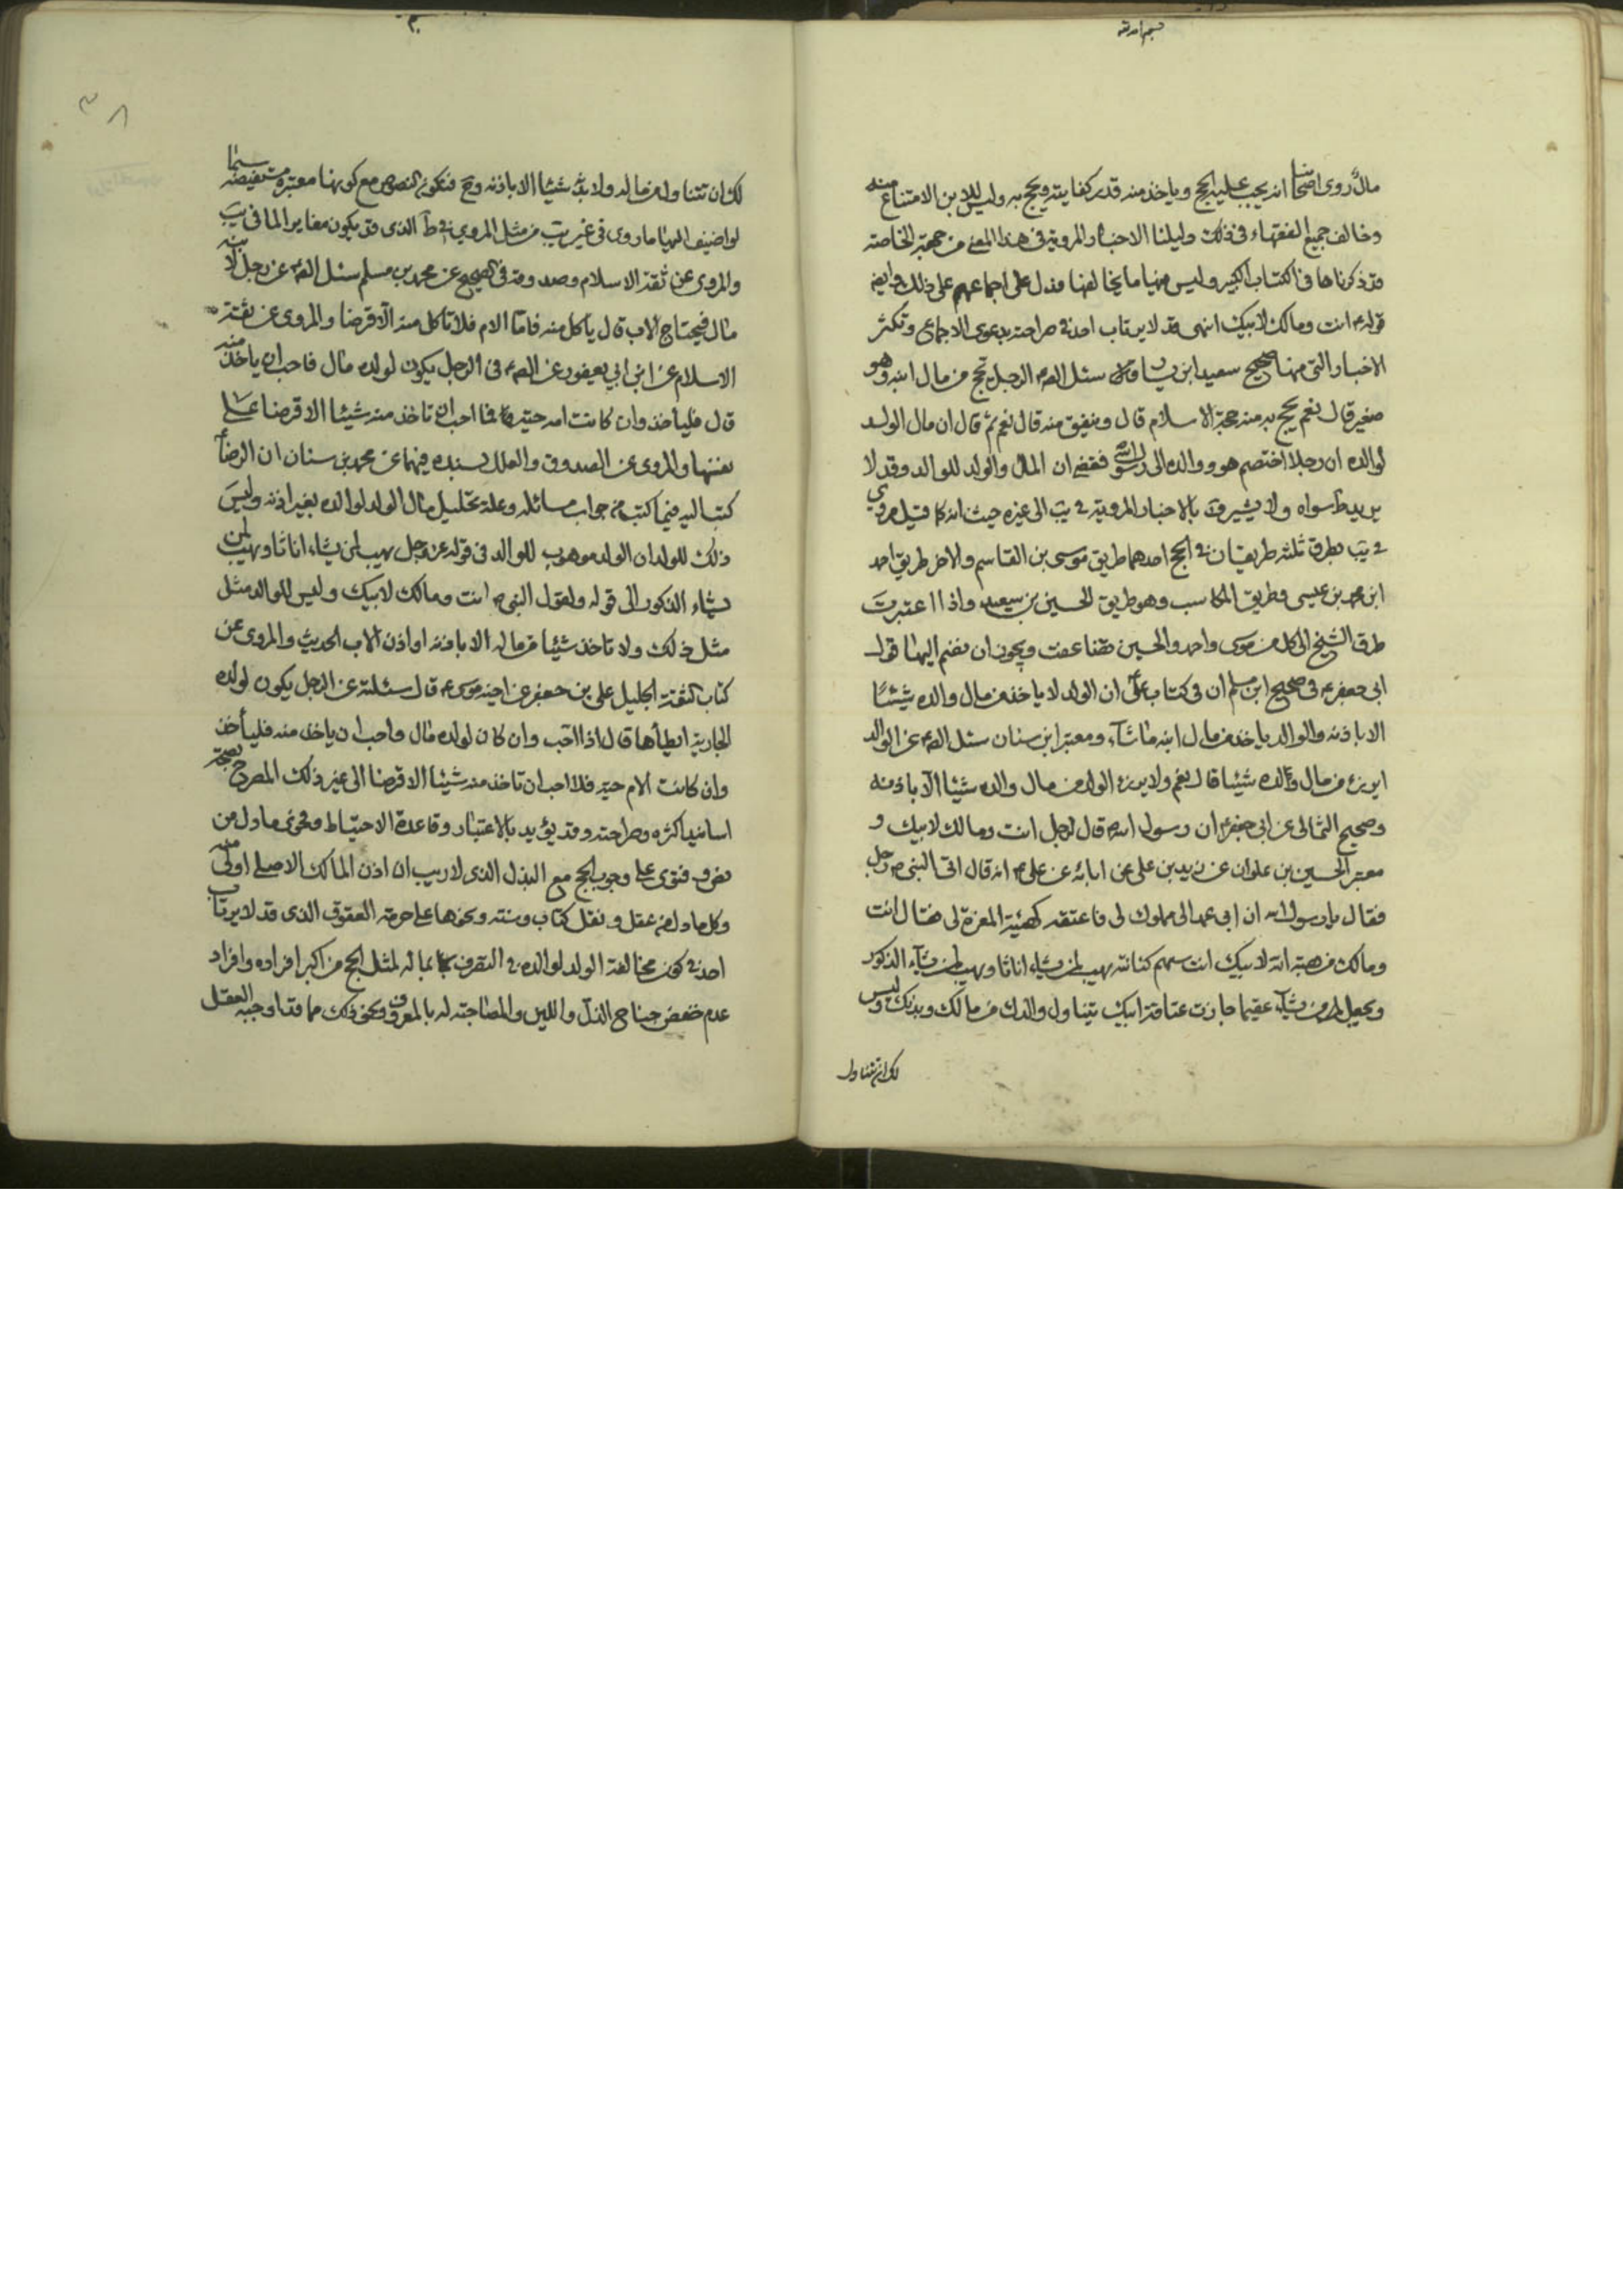 مال روى اصحابنا انه يجب عليه الحج وياخذ منه قدر كفايته ويحج به وليس للابن الامتناع منه
وخالف جميع الفقهاء في ذلك دليلنا الاخبار المروية في هذا المعنى من جهة الخاصة
قد ذكرناها في الكتاب الكبير وليس فيها ما يخالفها فدل على اجماعهم على ذلك وايضا
قوله ع انت ومالك لابيك انتهى قد لا يرتاب احد في صراحته بدعوى الاجماع وتكثر
الاخبار التي منها صحيح سعيد ابن يسار قال سئل الصم الرجل يحج من مال ابنه وهو
صغير قال نعم يحج به منه حجة الاسلام قال وينفق منه قال نعم ثم قال ان مال الولد
لوالده ان رجلا اختصم هو ووالده الى رسول الله ص فقضى ان المال والولد للوالد وقد لا
يريد ط سواه ولا يشير بالاخبار المروية في يب الى غيره حيث انه كما قيل مروي
في يب بطرق ثلثة طريقان في الحج احدهما طريق موسى بن القاسم والاخر طريق احمد
ابن محمد بن عيسى وطريق المكاسب وهو طريق الحسين بن سعيد واذا اعتبرت
طرق الشيخ الى كل من موسى واحمد والحسين تضاعفت ويجوز ان نضم اليها قول
ابي جعفر ع في صحيح ابن مسلم ان في كتاب علي ان الولد لا ياخذ من مال والده شيئا
الا باذنه والوالد ياخذ من مال ابنه ما شاء ومعتبر ابن سنان سئل الصم عن الوالد
ايرزء من مال ولده شيئا قال نعم ولا يرزء الولد من مال والده شيئا الا باذنه
وصحيح الثمالي عن ابي جعفر ع ان رسول الله ص قال لرجل انت ومالك لابيك و
معتبر الحسين بن علوان عن زيد بن علي عن ابائه عن علي ع انه قال اتى النبي ص رجل
فقال يا رسول الله ان ابي عمد الى مملوك لي فاعتقه كهيئة المضرة لي فقال انت
ومالك من هبة الله لابيك انت سهم من كنانته يهب لمن يشاء اناثا ويهب لمن يشاء الذكور
ويجعل من يشاء عقيما جازت عتاقة ابيك يتناول والدك من مالك وبدنك وليس
لك ان تتناول
لك ان تتناول من ماله ولا بدنه شيئا الا باذنه وح فتكون النصوص مع كونها معتبرة مستفيضة سيما
لو اضيف اليها ما روى في غير يب من مثل المروي في ط الذي قد يكون مغايرا لما في يب
والمروي عن ثقة الاسلام وصد وقد في الصحيح عن محمد بن مسلم سئل الصم عن رجل لابنه
مال فيحتاج الاب قال ياكل منه فاما الام فلا تاكل منه الا قرضا والمروي عن ثقة
الاسلام عن ابن ابي يعفور عن الصم في الرجل يكون لولده مال فاحب ان ياخذ منه
قال فلياخذ وان كانت امه حية فما احب ان تاخذ منه شيئا الا قرضا على
نفسها والمروي عن الصدوق والعلل بسنده فيهما عن محمد بن سنان ان الرضا
كتب اليه فيما كتب من جواب مسائله وعلة تحليل مال الولد لوالده بغير اذنه وليس
ذلك للولد ان الولد موهوب للوالد في قوله عز وجل يهب لمن يشاء اناثا ويهب لمن
يشاء الذكور الى قوله ولقول النبي ص انت ومالك لابيك وليس للوالدة مثل
مثل ذلك ولا تاخذ شيئا من ماله الا باذنه او اذن الاب الحديث والمروي عن
كتاب الثقة الجليل علي بن جعفر عن اخيه موسى ع قال سئلته عن الرجل يكون لولده
الجارية ايطأها قال اذا احب وان كان لولده مال واحب ان ياخذ منه فليأخذ
وان كانت الام حية فلا احب ان تاخذ منه شيئا الا قرضا الى غير ذلك المصرح بصحة
اسانيد اكثره وصراحته وقد يؤيد بالاعتبار وقاعدة الاحتياط وفحوى ما دل من
نص وفتوى على وجوب الحج مع البذل الذي لا ريب ان اذن المالك الاصلي اولى منه
وكل ما دل من عقل ونقل كتاب وسنة ونحوها على حرمة العقوق الذي قد لا يرتاب
احد في كون مخالفة الولد لوالده في التصرف بماله لمثل الحج من اكبر افراده وافراد
عدم خفض جناح الذل واللين والمصاحبة له بالمعروف ونحو ذلك مما قد اوجبه العقل